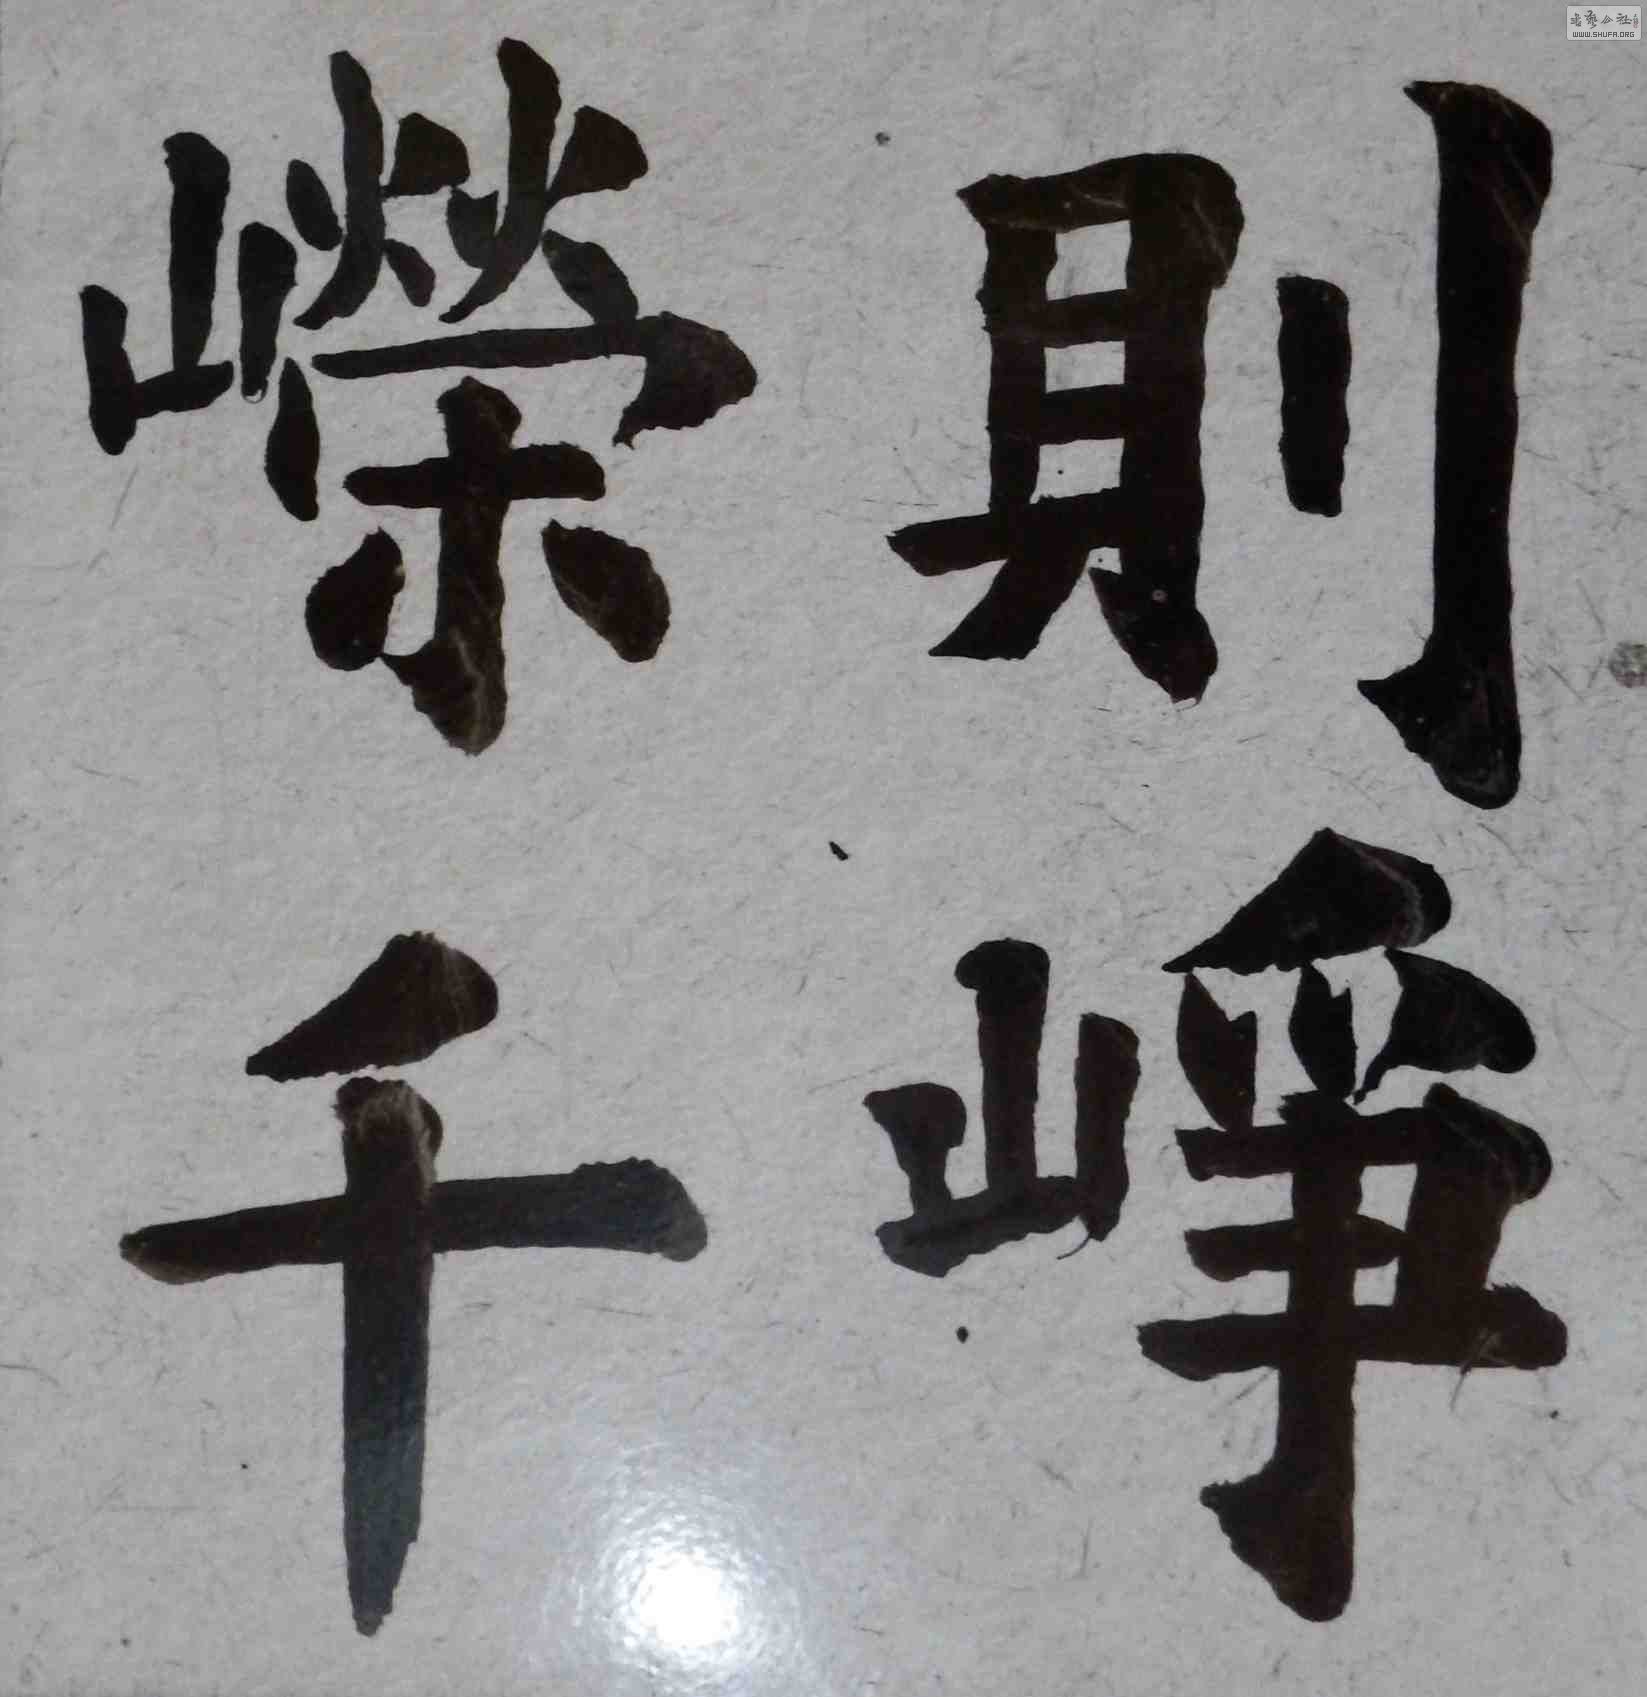 則崢
嶸千
書藝公社
WWW.SHUFA.ORG